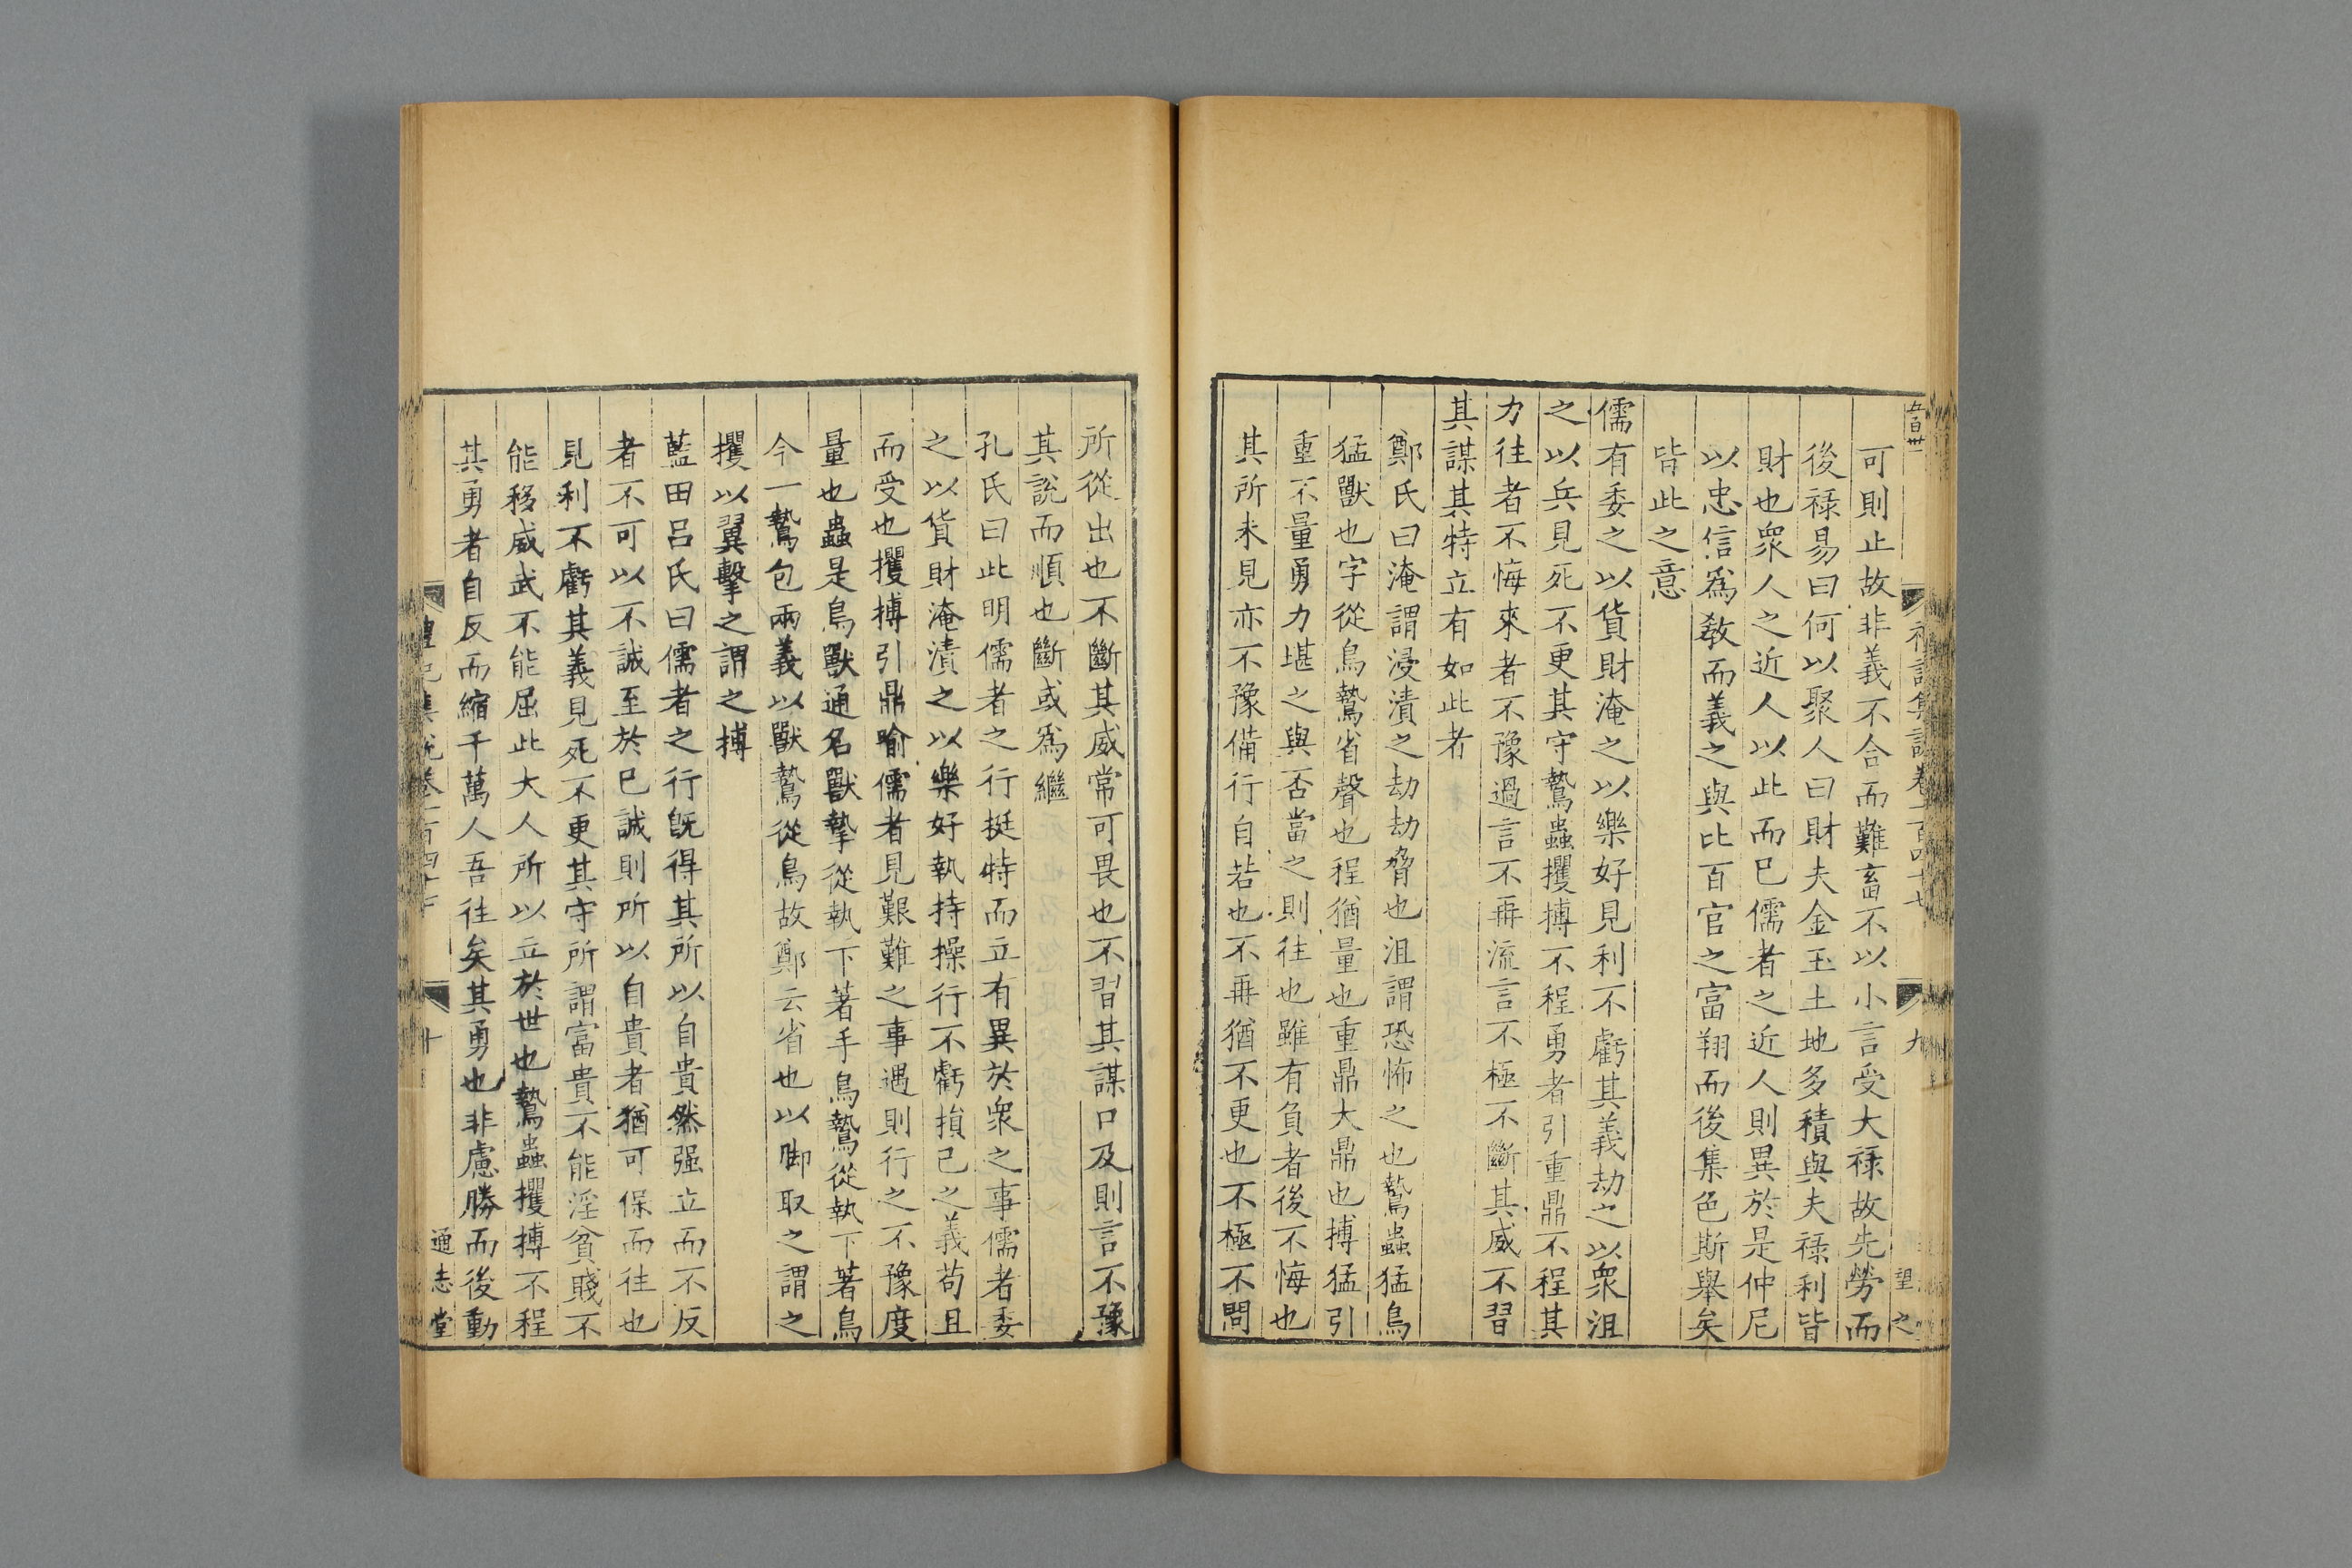 可則止故非義不合而難畜不以小言受大祿故先勞而
後祿易曰何以聚人曰財夫金玉土地多積與夫祿利皆
財也衆人之近人以此而已儒者之近人則異於是仲尼
以忠信爲教而義之與比百官之富翔而後集色斯舉矣
皆此之意
儒有委之以貨財淹之以樂好見利不虧其義劫之以衆沮
之以兵見死不更其守鷙蟲攫搏不程勇者引重鼎不程其
力往者不悔來者不豫過言不再流言不極不斷其威不習
其謀其特立有如此者
鄭氏曰淹謂浸漬之劫劫脅也沮謂恐怖之也鷙蟲猛鳥
猛獸也字從鳥鷙省聲也程猶量也重鼎大鼎也搏猛引
重不量勇力堪之與否當之則往也雖有負者後不悔也
其所未見亦不豫備行自若也不再猶不更也不極不問
所從出也不斷其威常可畏也不習其謀口及則言不豫
其說而順也斷或爲繼
孔氏曰此明儒者之行挺特而立有異於衆之事儒者委
之以貨財淹漬之以樂好執持操行不虧損己之義苟且
而受也攫搏引鼎喻儒者見艱難之事遇則行之不豫度
量也蟲是鳥獸通名獸摯從執下著手鳥鷙從執下著鳥
今一鷙包兩義以獸鷙從鳥故鄭云省也以脚取之謂之
攫以翼擊之謂之搏
藍田呂氏曰儒者之行旣得其所以自貴然强立而不反
者不可以不誠至於已誠則所以自貴者猶可保而往也
見利不虧其義見死不更其守所謂富貴不能淫貧賤不
能移威武不能屈此大人所以立於世也鷙蟲攫搏不程
其勇者自反而縮千萬人吾往矣其勇也非慮勝而後動
禮記集說卷一百四十七
十
通志堂